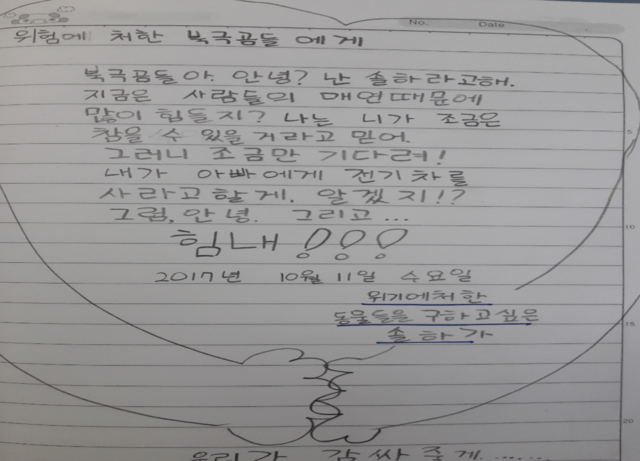 No. Date
위험에 처한 북극곰들 에게
북극곰들아. 안녕? 난 솔하라고해.
지금은 사람들의 매연때문에
많이 힘들지? 나는 니가 조금은
참을 수 있을 거라고 믿어.
그러니 조금만 기다려!
내가 아빠에게 전기차를
사라고할게. 알겠지!?
그럼, 안녕. 그리고...
힘내!!!
2017년 10월 11일 수요일
위기에처한
동물들을 구하고싶은
솔하가
우리가 감싸줄게......
5
10
15
20